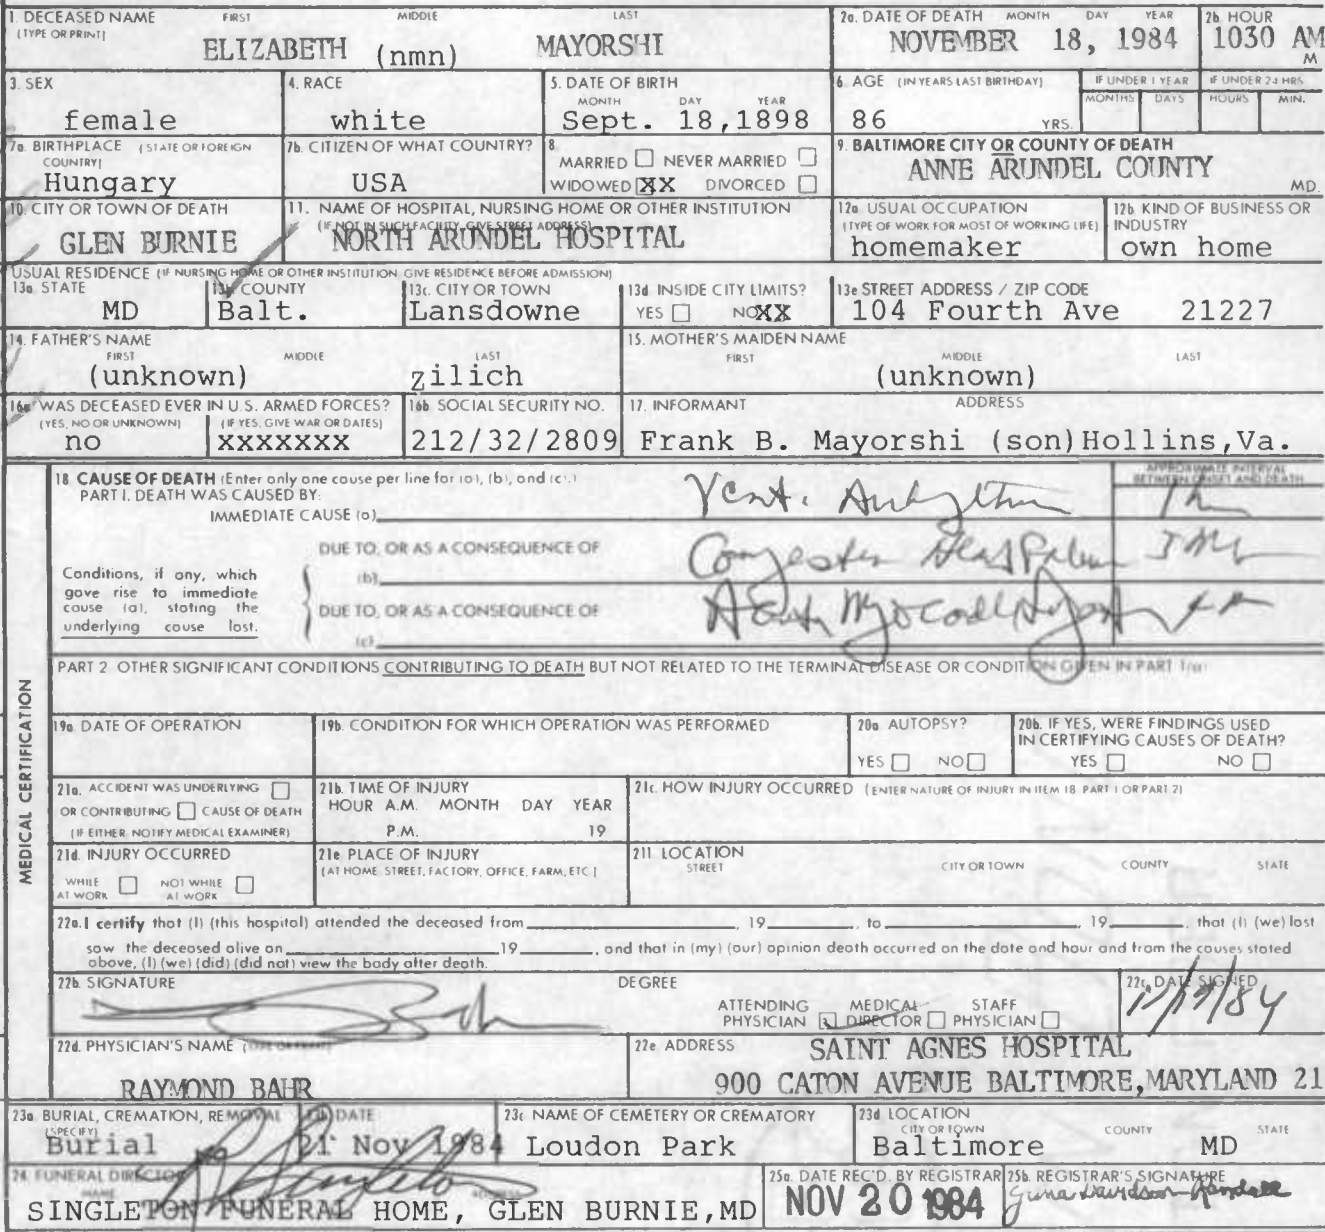 1. DECEASED NAME FIRST MIDDLE LAST
(TYPE OR PRINT)
ELIZABETH (nmn) MAYORSHI
2a. DATE OF DEATH MONTH DAY YEAR
NOVEMBER 18, 1984
2b. HOUR
1030 AM
M
3. SEX
female
4. RACE
white
5. DATE OF BIRTH
MONTH DAY YEAR
Sept. 18,1898
6. AGE (IN YEARS LAST BIRTHDAY)
86 YRS.
IF UNDER 1 YEAR
MONTHS DAYS
IF UNDER 24 HRS
HOURS MIN.
7a. BIRTHPLACE (STATE OR FOREIGN
COUNTRY)
Hungary
7b. CITIZEN OF WHAT COUNTRY?
USA
8
MARRIED NEVER MARRIED
WIDOWED XX DIVORCED
9. BALTIMORE CITY OR COUNTY OF DEATH
ANNE ARUNDEL COUNTY
MD.
10. CITY OR TOWN OF DEATH
GLEN BURNIE
11. NAME OF HOSPITAL, NURSING HOME OR OTHER INSTITUTION
(IF NOT IN SUCH FACILITY, GIVE STREET ADDRESS)
NORTH ARUNDEL HOSPITAL
12a. USUAL OCCUPATION
(TYPE OF WORK FOR MOST OF WORKING LIFE)
homemaker
12b. KIND OF BUSINESS OR
INDUSTRY
own home
USUAL RESIDENCE (IF NURSING HOME OR OTHER INSTITUTION GIVE RESIDENCE BEFORE ADMISSION)
13a STATE
MD
13b COUNTY
Balt.
13c. CITY OR TOWN
Lansdowne
13d INSIDE CITY LIMITS?
YES NO XX
13e STREET ADDRESS / ZIP CODE
104 Fourth Ave 21227
14. FATHER'S NAME
FIRST MIDDLE LAST
(unknown) zilich
15. MOTHER'S MAIDEN NAME
FIRST MIDDLE LAST
(unknown)
16a WAS DECEASED EVER IN U.S. ARMED FORCES?
(YES, NO OR UNKNOWN) (IF YES, GIVE WAR OR DATES)
no xxxxxxx
16b SOCIAL SECURITY NO.
212/32/2809
17. INFORMANT ADDRESS
Frank B. Mayorshi (son)Hollins,Va.
MEDICAL CERTIFICATION
18 CAUSE OF DEATH (Enter only one cause per line for (a), (b), and (c).)
PART I. DEATH WAS CAUSED BY:
APPROXIMATE INTERVAL
BETWEEN ONSET AND DEATH
IMMEDIATE CAUSE (a) Vent.
DUE TO, OR AS A CONSEQUENCE OF
(b)
Conditions, if any, which
gave rise to immediate
cause (a), stating the
underlying cause last.
DUE TO, OR AS A CONSEQUENCE OF
(c)
PART 2 OTHER SIGNIFICANT CONDITIONS CONTRIBUTING TO DEATH BUT NOT RELATED TO THE TERMINAL DISEASE OR CONDITION GIVEN IN PART 1(a)
19a DATE OF OPERATION
19b. CONDITION FOR WHICH OPERATION WAS PERFORMED
20a AUTOPSY?
YES NO
20b. IF YES, WERE FINDINGS USED
IN CERTIFYING CAUSES OF DEATH?
YES NO
21a. ACCIDENT WAS UNDERLYING
OR CONTRIBUTING CAUSE OF DEATH
(IF EITHER NOTIFY MEDICAL EXAMINER)
21b. TIME OF INJURY
HOUR A.M. MONTH DAY YEAR
P.M. 19
21c. HOW INJURY OCCURRED (ENTER NATURE OF INJURY IN ITEM 18 PART 1 OR PART 2)
21d. INJURY OCCURRED
WHILE NOT WHILE
AT WORK AT WORK
21e PLACE OF INJURY
(AT HOME STREET, FACTORY, OFFICE, FARM, ETC.)
21f LOCATION
STREET CITY OR TOWN COUNTY STATE
22a. I certify that (I) (this hospital) attended the deceased from , 19 , to , 19 , that (I) (we) last
saw the deceased alive on 19 , and that in (my) (our) opinion death occurred on the date and hour and from the causes stated
above, (I) (we) (did) (did not) view the body after death.
22b. SIGNATURE
DEGREE
ATTENDING MEDICAL STAFF
PHYSICIAN DIRECTOR PHYSICIAN
22c. DATE SIGNED
22d. PHYSICIAN'S NAME (TYPE OR PRINT)
RAYMOND BAHR
22e ADDRESS
SAINT AGNES HOSPITAL
900 CATON AVENUE BALTIMORE,MARYLAND 21
23a. BURIAL, CREMATION, REMOVAL
(SPECIFY)
Burial
23b DATE
21 Nov 1984
23c NAME OF CEMETERY OR CREMATORY
Loudon Park
23d LOCATION
CITY OR TOWN COUNTY STATE
Baltimore MD
24 FUNERAL DIRECTOR
NAME ADDRESS
SINGLETON FUNERAL HOME, GLEN BURNIE,MD
25a. DATE REC'D. BY REGISTRAR
NOV 20 1984
25b. REGISTRAR'S SIGNATURE
Davidson-Randall